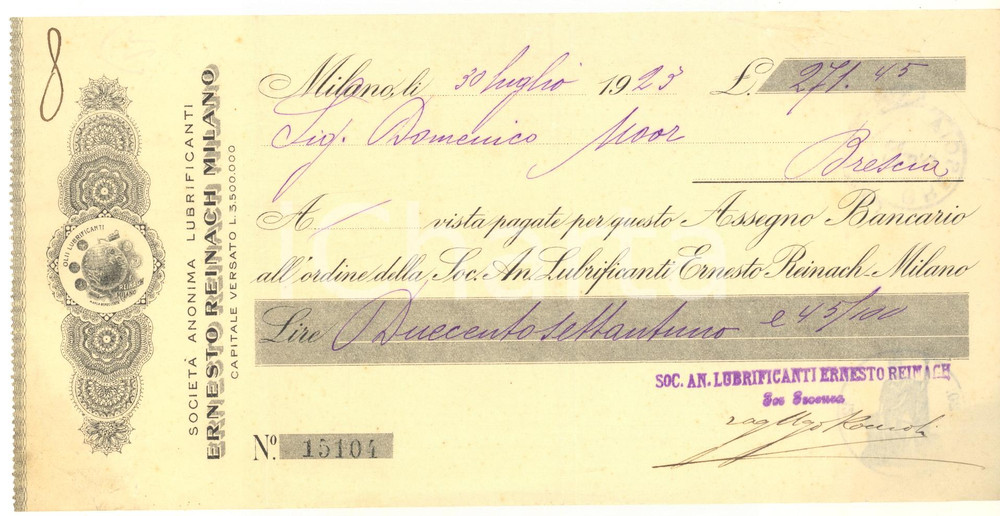 8
SOCIETÀ ANONIMA LUBRIFICANTI
ERNESTO REINACH MILANO
CAPITALE VERSATO L. 3.500.000
OLII LUBRIFICANTI
REINACH
MILANO
Milano, li 30 luglio 1923 £. 271.45
Sig. Domenico Moor
Brescia
A vista pagate per questo Assegno Bancario
all'ordine della Soc. An. Lubrificanti Ernesto Reinach-Milano
Lire Duecentosettantuno e 45/100
SOC. AN. LUBRIFICANTI ERNESTO REINACH
rag Ugo
No. 15104
iCharta